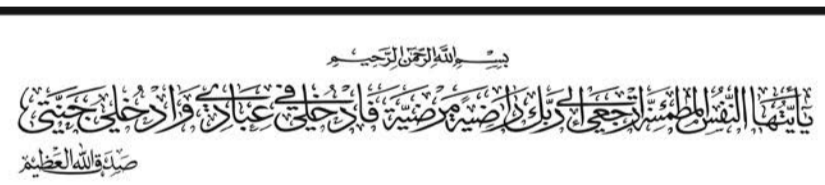 بسم الله الرحمن الرحيم
يا أيتها النفس المطمئنة ارجعي إلى ربك راضية مرضية فادخلي في عبادي وادخلي جنتي
صدق الله العظيم